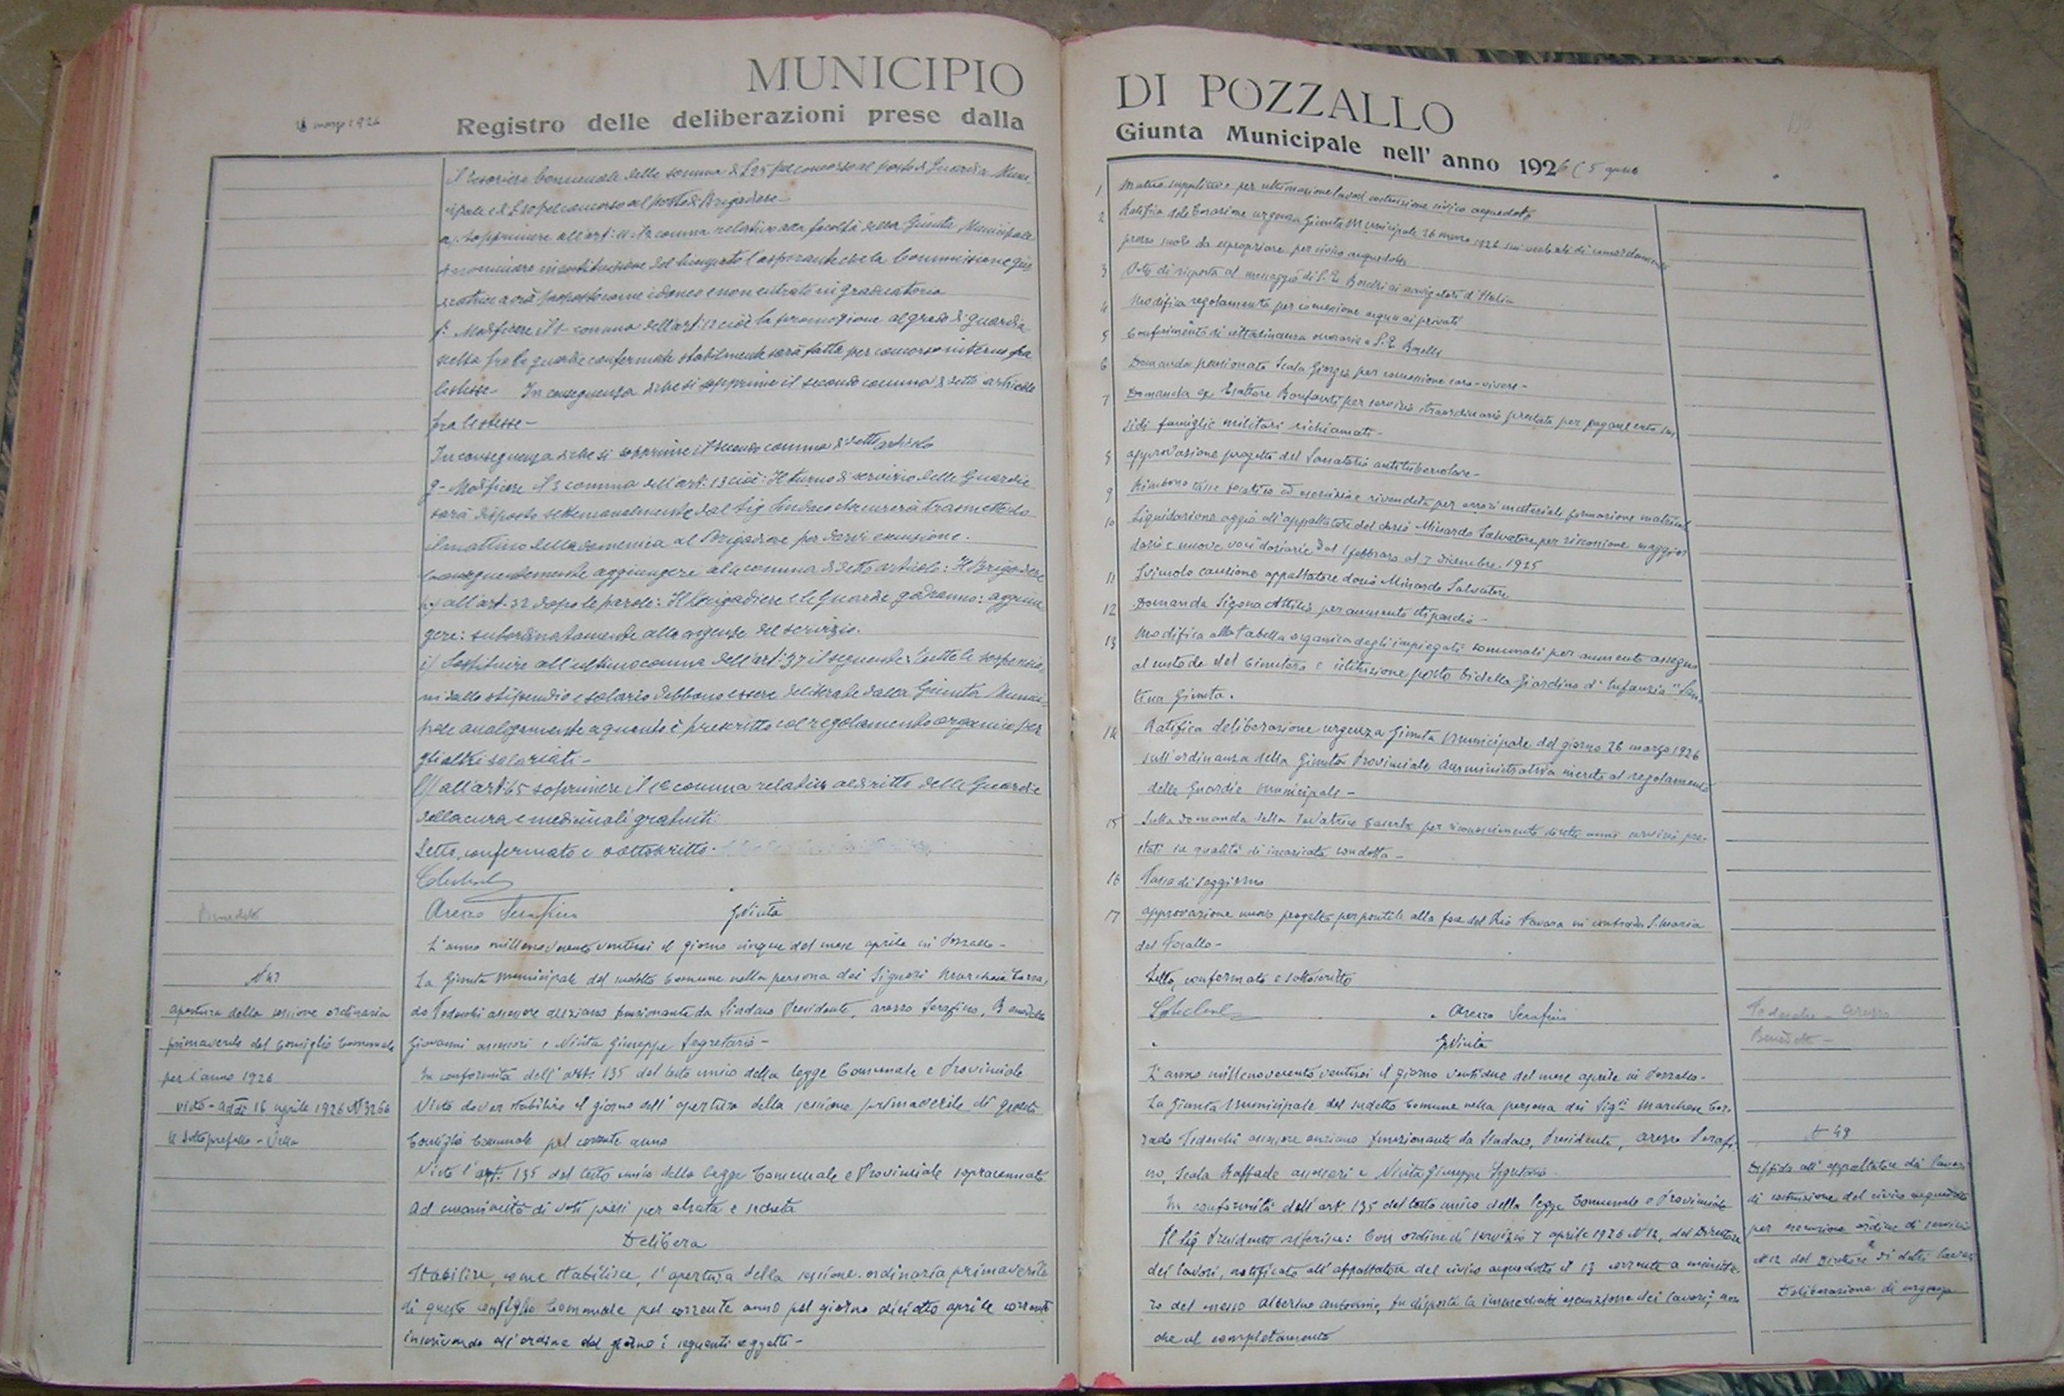 MUNICIPIO
Registro delle deliberazioni prese dalla
marzo 1926
Il Tesoriere Comunale della somma di £ 25 pel concorso al posto di Guardia Muni-
cipale e di £ 50 pel concorso al posto di Brigadiere
sopprimere all'art. 11 comma relativo alla facoltà della Giunta Municipale
nominare in sostituzione del l'aspirante che la Commissione giu
dicatrice avrà proposto come idoneo e non entrato in graduatoria
f: Modificare il 1° comma dell'art. 12 cioè la promozione al grado di guardia
scelta fra le guardie confermate stabilmente sarà fatta per concorso interno fra
le stesse - In conseguenza di che si sopprime il secondo comma di detto articolo
fra le stesse -
In conseguenza di che si sopprime il secondo comma di detto articolo
g - Modificare il 3 comma dell'art. 13 cioè: Il turno di servizio delle Guardie
sarà disposto settimanalmente dal Sig. Sindaco che curerà trasmetterlo
il mattino della domenica al Brigadiere per darvi esecuzione.
Conseguentemente aggiungere al comma di detto articolo: Il Brigadiere
h) all'art. 32 dopo le parole: Il Brigadiere e le Guardie godranno: aggiun
gere: subordinatamente alle esigenze del servizio.
i) Sostituire all'ultimo comma dell'art. 37 il seguente: Tutte le sospensio
ni dallo stipendio e salario debbono essere deliberate dalla Giunta Munici-
pale analogamente a quanto è prescritto col regolamento organico per
gli altri salariati -
l) all'art. 65 sopprimere il 1° comma relativo al diritto delle Guardie
della cura e medicinali gratuiti.
Letto, confermato e sottoscritto.
Arezzo Serafino GNinta
Benedetto
L'anno millenovecentoventisei il giorno cinque del mese aprile in Pozzallo -
La Giunta Municipale del suddetto Comune nella persona dei Signori Marchese Corra,
do Tedeschi assessore anziano funzionante da Sindaco Presidente, Arezzo Serafino, Benedetto
Giovanni assessori e Ninta Giuseppe Segretario -
In conformità dell'art. 135 del testo unico della legge Comunale e Provinciale
Visto dover stabilire il giorno dell'apertura della sessione primaverile di questo
Consiglio Comunale pel corrente anno
Visto l'art. 135 del testo unico della legge Comunale e Provinciale sopracennato
Ad unanimità di voti presi per alzata e seduta
Delibera
Stabilire, come stabilisce, l'apertura della sessione ordinaria primaverile
di questo consiglio Comunale pel corrente anno pel giorno diciotto aprile corrente
inscrivendo all'ordine del giorno i seguenti oggetti -
apertura della sessione ordinaria
primaverile del Consiglio Comunale
per l'anno 1926
Visto - addì 16 aprile 1926 N 3266
Il Sottoprefetto - Vella
DI POZZALLO
Giunta Municipale nell'anno 1926 (5 aprile
1 Mutuo suppletivo per ultimazione lavori costruzione civico acquedotto
2 Ratifica deliberazione urgenza Giunta Municipale 26 marzo 1926 sui verbali di
prezzo suolo da espropriare per civico acquedotto
3 Voto di risposta al messaggio di S. E. Borelli ai navigatori d'Italia
4 Modifica regolamento per concessione acqua ai privati
5 Conferimento di cittadinanza onoraria a S. E. Borelli
6 Domanda pensionato Scala Giorgio per concessione caro-viveri -
7 Domanda ex Esattore Bonfanti per servizio straordinario prestato per pagamento sus
sidi famiglie militari richiamati -
8 approvazione progetto del Sanatorio antitubercolare -
9 Rimborso tasse focatico ed esercizio e rivendita per errori materiali formazione matricole
10 Liquidazione aggio all'appaltatore del dazio Minardo Salvatore per riscossione maggior
dazio e nuove voci daziarie dal 1 febbraio al 7 Dicembre 1925
11 Svincolo cauzione appaltatore dazio Minardo Salvatore
12 Domanda Sigona Attilio per aumento stipendio -
13 Modifica alla tabella organica degli impiegati comunali per aumento assegno
al custode del Cimitero e istituzione posto bidella Giardino d'Infanzia "Lan
tina Giunta.
14 Ratifica deliberazione urgenza Giunta Municipale del giorno 26 marzo 1926
sull'ordinanza della Giunta Provinciale Amministrativa inerente al regolamento
delle Guardie Municipali -
15 Sulla domanda della levatrice Caserta per riconoscimento diritti anni servizio pre-
stati in qualità di incaricata condotta -
16 Tassa di soggiorno
17 approvazione nuovo progetto per pontile alla foce del Rio Favara in contrada S. Maria
del Focallo -
Letto, confermato e sottoscritto
Arezzo Serafino
GNinta
Tedeschi - Arezzo
Benedetto -
L'anno millenovecentoventisei il giorno ventidue del mese aprile in Pozzallo -
La Giunta Municipale del suddetto Comune nella persona dei Sigri Marchese Cor-
rado Tedeschi assessore anziano funzionante da Sindaco, Presidente, Arezzo Serafi
no, Scala Raffaele assessori e Ninta Giuseppe Segretario
In conformità dell'art. 135 del testo unico della legge Comunale e Provinciale
Il Sig. Presidente riferisce: Con ordine di servizio 7 aprile 1926 N 12, del Direttore
dei lavori, notificato all'appaltatore del civico acquedotto il 13 corrente a ministe-
ro del messo Alberino Antonino, fu disposta la immediata esecuzione dei lavori; non
che al completamento
N 49
Diffida all'appaltatore dei lavori
di costruzione del civico acquedotto
per esecuzione ordine di servizio
N 12 del Direttore di detti lavori
Deliberazione di urgenza